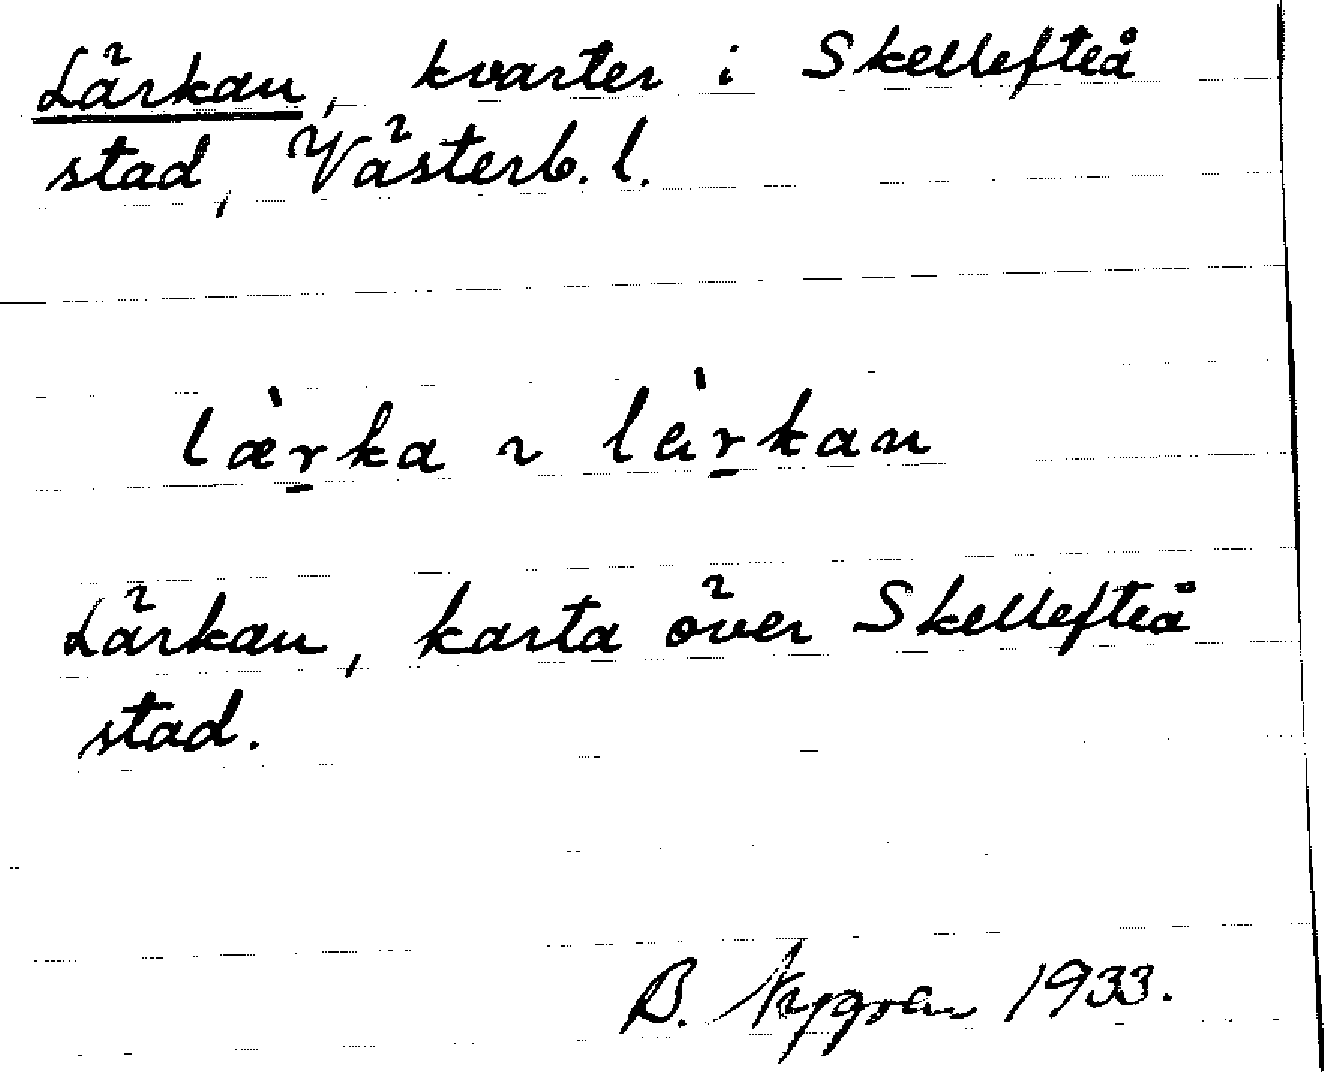 Lärkan, kvarter i Skellefteå
stad, Västerb. l.
læ̀r̠ka ~ lèr̠kan
Lärkan, karta över Skellefteå
stad.
B. Nygren 1933.